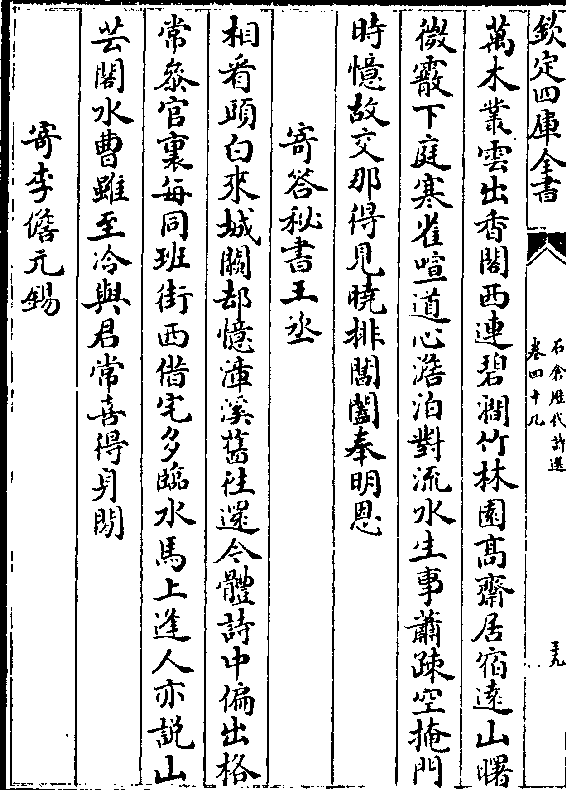 欽定四庫全書
石倉歴代詩選
卷四十九
萬木叢雲出香閣西連碧澗竹林園髙齋居宿逺山曙
微霰下庭寒雀喧道心澹泊對流水生事蕭疎空掩門
時憶故交那得見曉排閶闔奉明恩
寄答秘書王丞
相看頭白來城闕却憶漳溪舊往還今體詩中偏出格
常叅官裏每同班街西借宅多臨水馬上逢人亦説山
芸閣水曹雖至冷與君常喜得身閒
寄李儋元錫